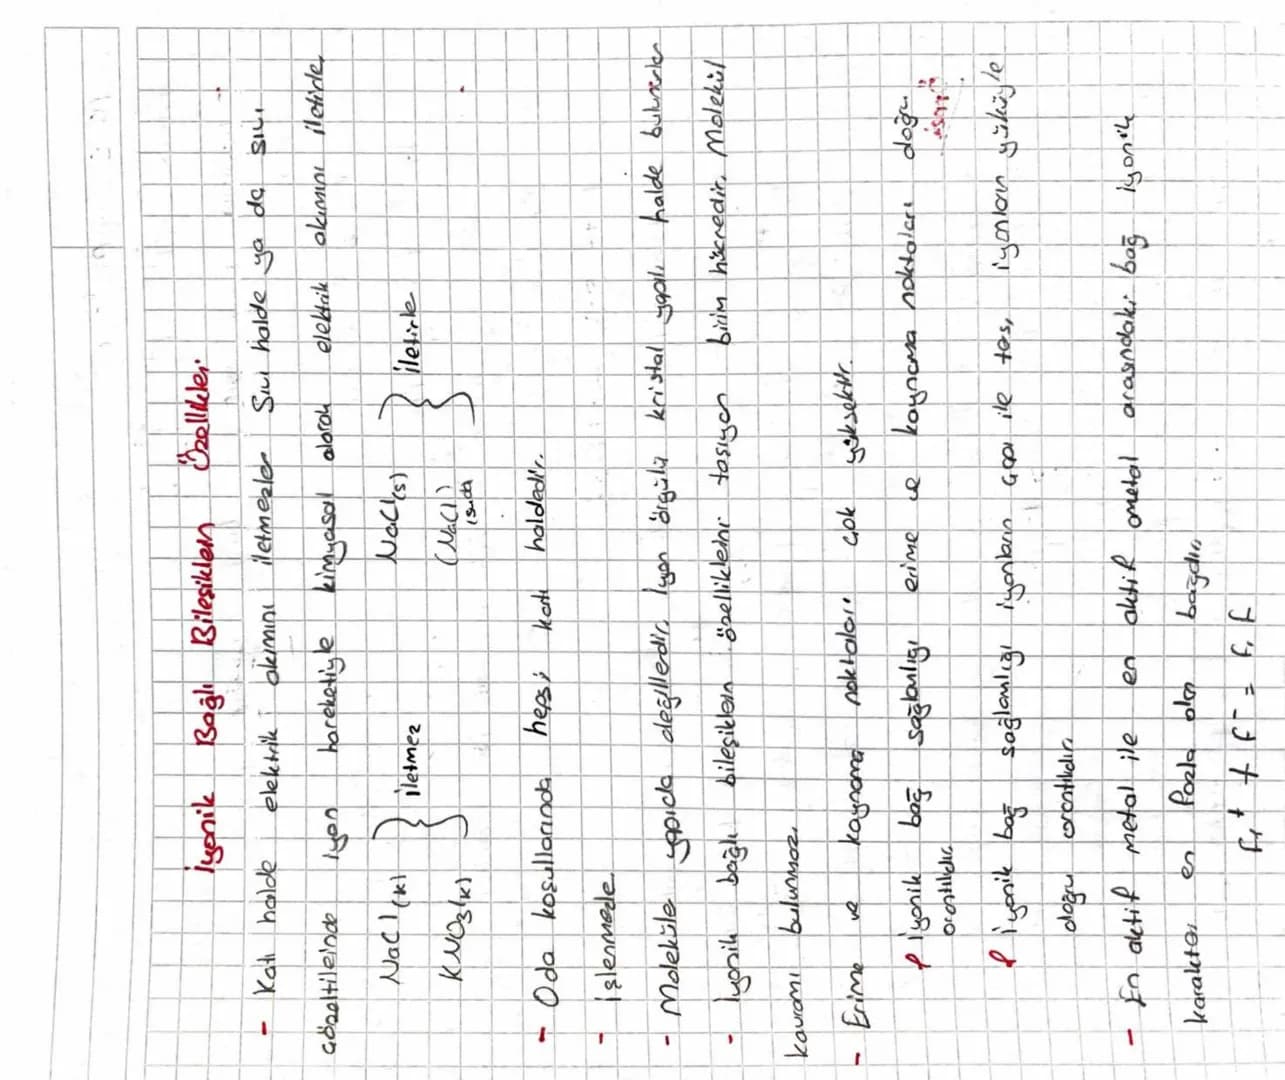 İyonik Bağlı Bileşiklen Özellikler
- Katı halde elektrik akımını iletmezler Sıvı halde ya da sıvı
çözeltileinde iyon hareketiyle kimyasal olarak elektrik akımını iletirle
NaCl(k) } iletmez NaCl(s) } iletirle
KNO3(k) (NaCl)suda
- Oda koşullarında hepsi katı haldedir.
- işlenmezle
- Moleküle yapıda değillerdir. İyon örgülü kristal yapılı halde bulunurlar
- İyonik bağlı bileşiklein özelliklerini taşıyan birim hücredir. Molekül
kavramı bulunmaz.
- Erime ve kaynama noktaları çok yüksektir.
İyonik bağ sağlamlığı erime ve kaynama noktaları doğru
orantılıdır.
İyonik bağ sağlamlığı iyonların çapı ile ters, iyonların yüküyle
doğru orantılıdır.
- En aktif metal ile en aktif ametal arasındaki bağ iyonik
karakteri en fazla olan bağdır.
Fr+ + F- = FrF